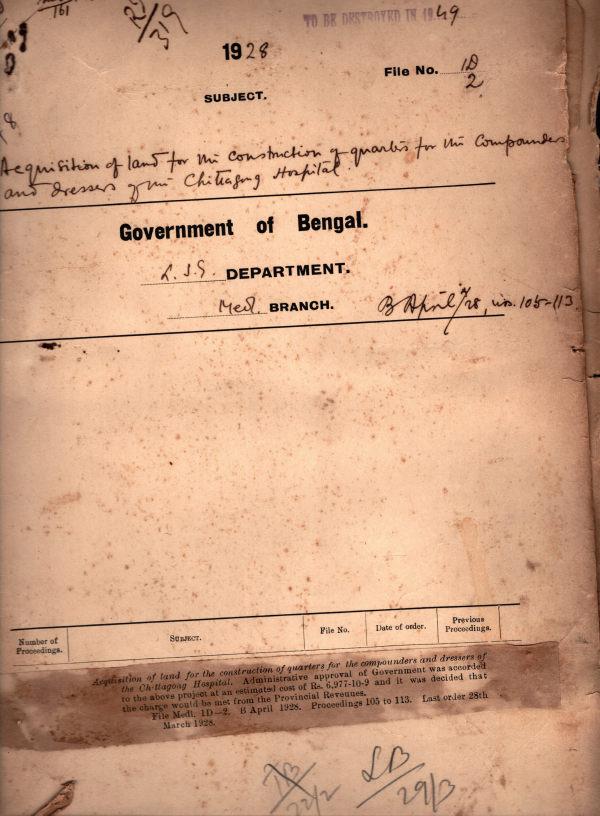 161
29/3
TO BE DESTROYED IN 1949
1928
File No. 1D/2
SUBJECT.
Acquisition of land for the construction of quarters for the Compounders
and dressers of the Chittagong Hospital.
Government of Bengal.
L.S.G. DEPARTMENT.
Medl. BRANCH.
B April/28, nos. 105-113.
Number of Proceedings.
SUBJECT.
File No.
Date of order.
Previous Proceedings.
Acquisition of land for the construction of quarters for the compounders and dressers of
the Chittagong Hospital. Administrative approval of Government was accorded
to the above project at an estimated cost of Rs. 6,977-10-9 and it was decided that
the charge would be met from the Provincial Revenues.
File Medl. 1D—2. B April 1928. Proceedings 105 to 113. Last order 28th
March 1928.
22/2
LB
29/3